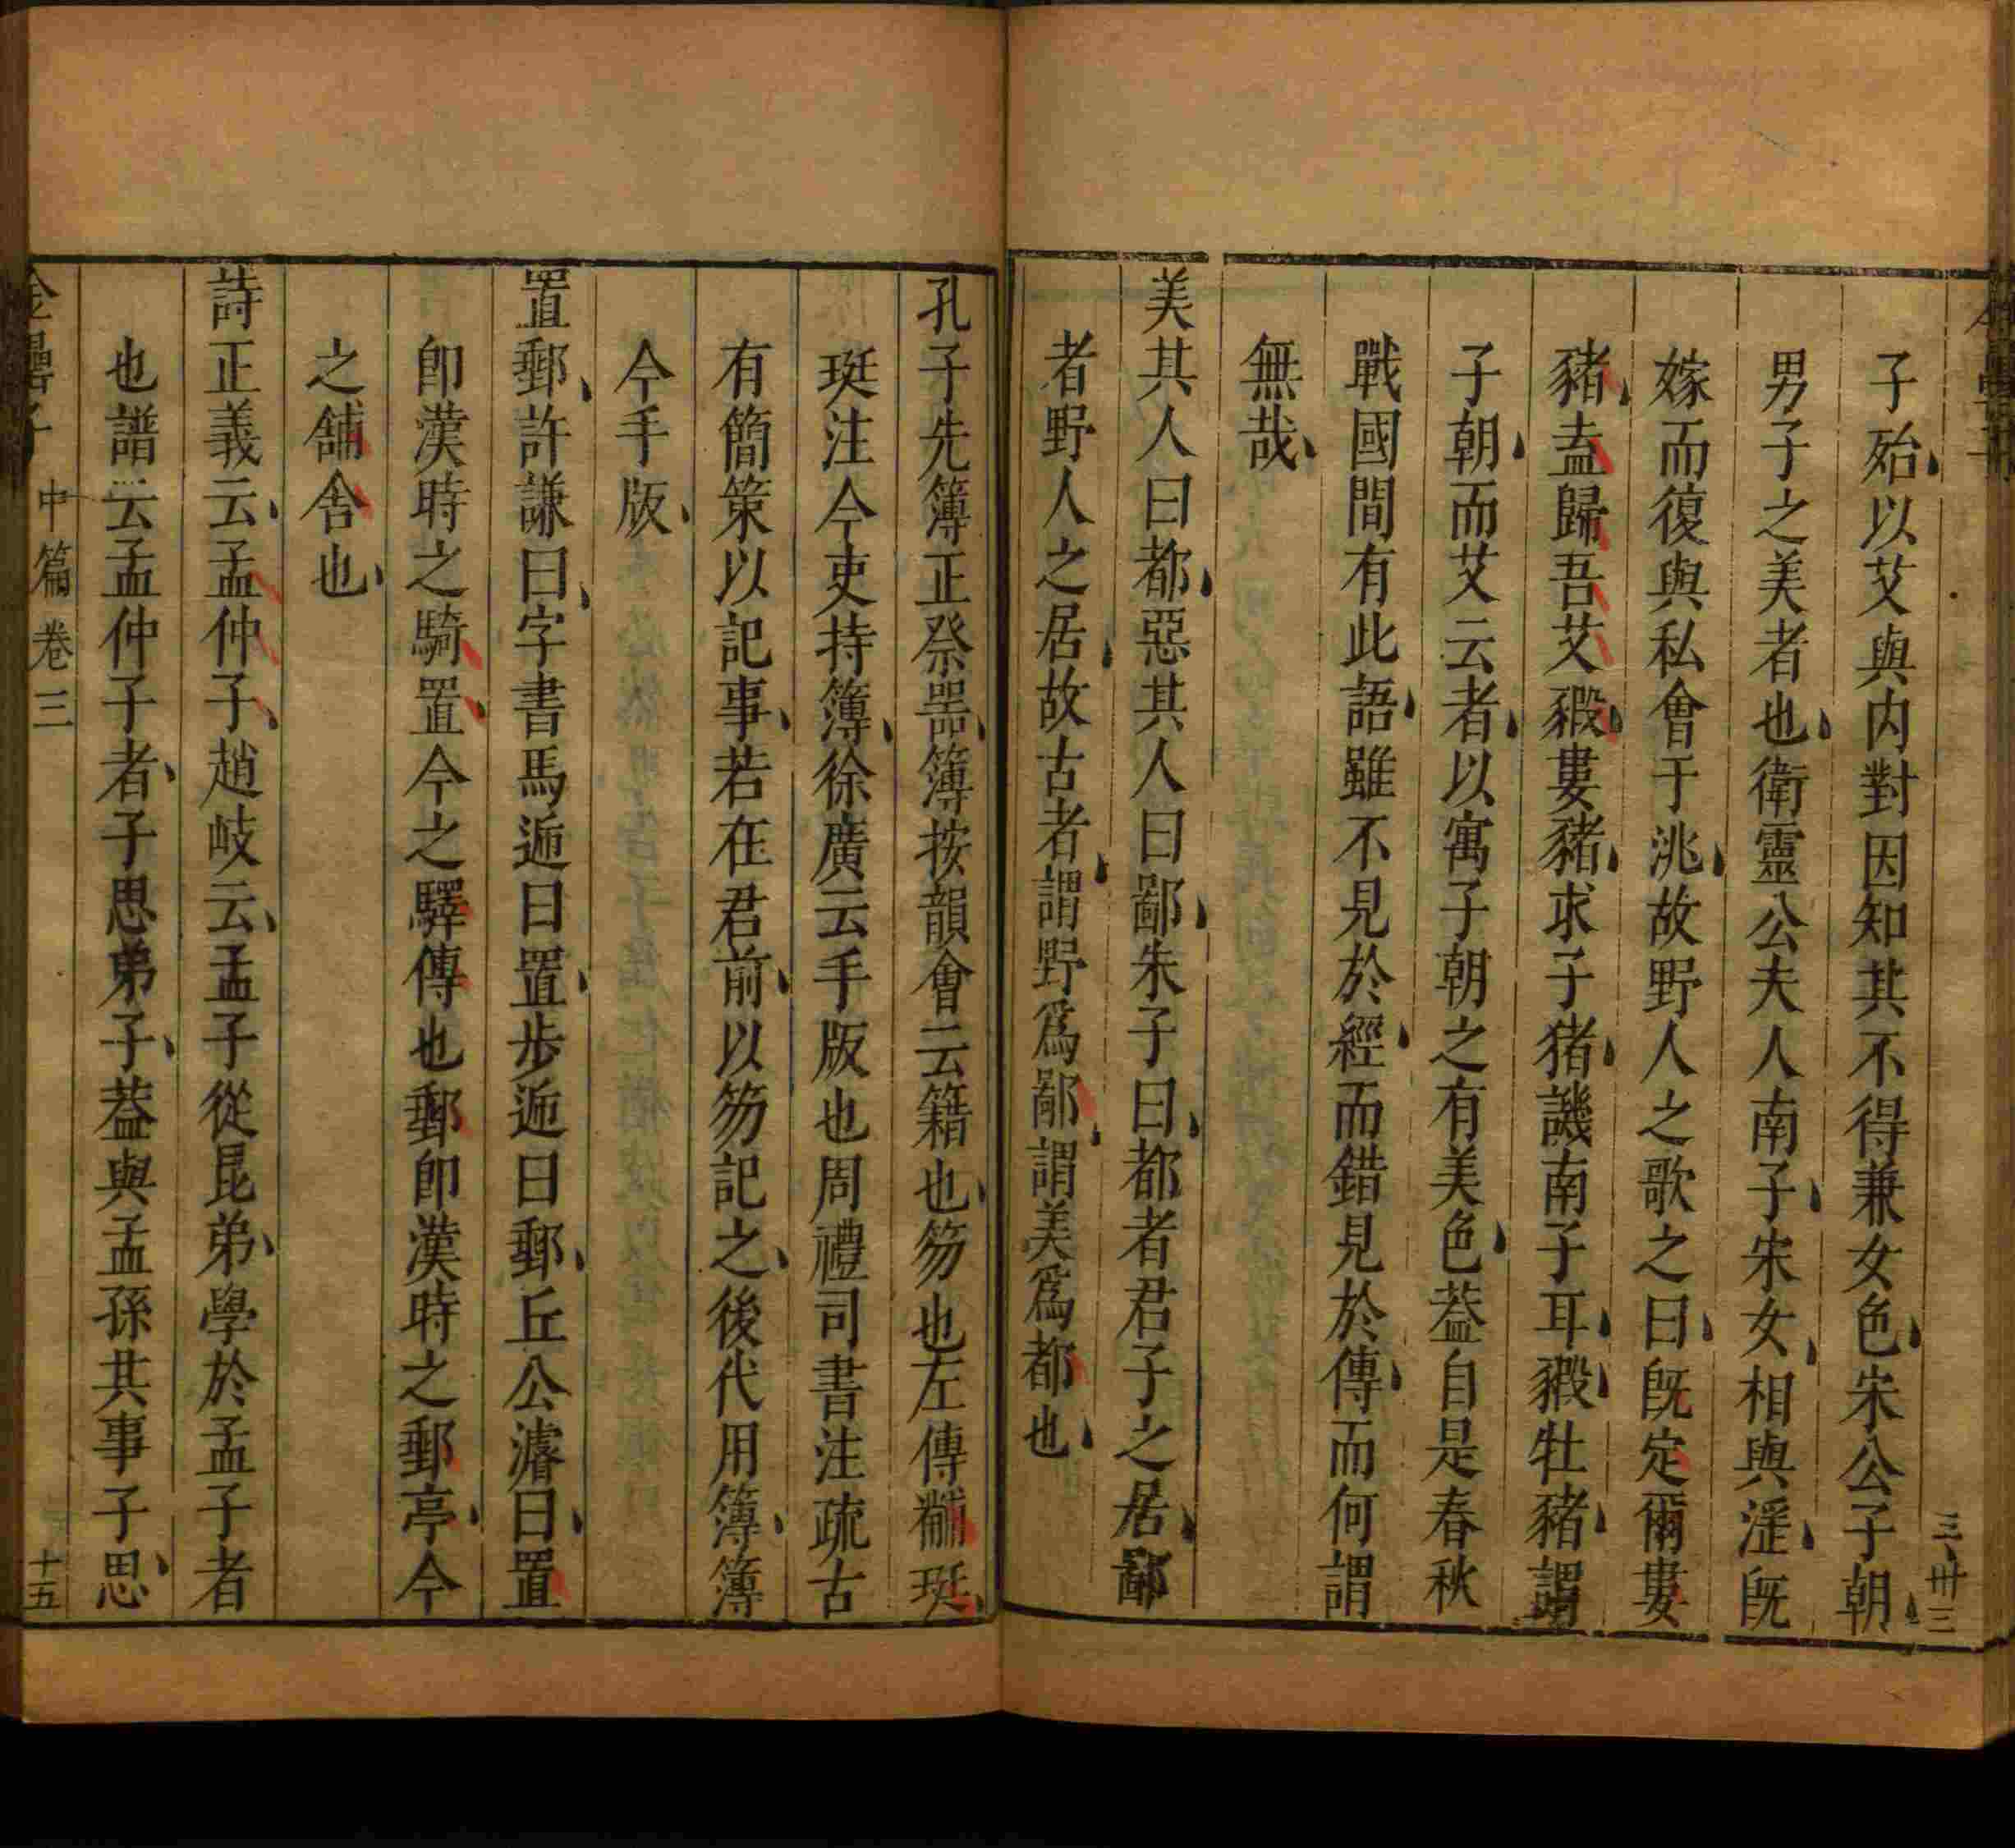 三卅三
子殆以艾與内對因知其不得兼女色宋公子朝
男子之美者也衛靈公夫人南子宋女相與滛旣
嫁而復與私會于洮故野人之歌之曰旣定爾婁
豬盍歸吾艾豭婁豬求子猪譏南子耳豭牡豬謂
子朝而艾云者以寓子朝之有美色葢自是春秋
戰國間有此語雖不見於經而錯見於傳而何謂
無哉
美其人曰都惡其人曰鄙朱子曰都者君子之居鄙
者野人之居故古者謂野爲鄙謂美爲都也
孔子先簿正祭噐簿按韻會云籍也笏也左傳黼珽
珽注今吏持簿徐廣云手版也周禮司書注疏古
有簡策以記事若在君前以笏記之後代用簿簿
今手版
置郵許謙曰字書馬逓曰置步逓曰郵丘公濬曰置
卽漢時之騎置今之驛傳也郵卽漢時之郵亭今
之舖舍也
詩正義云孟仲子趙岐云孟子從昆弟學於孟子者
也譜云孟仲子者子思弟子葢與孟孫其事子思
金罍子 中篇卷三 十五